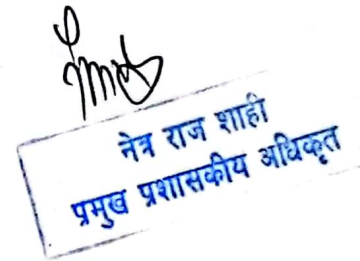 नेत्र राज शाही
प्रमुख प्रशासकीय अधिकृत